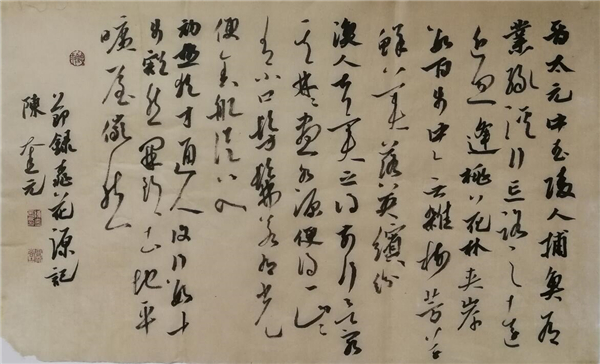 晋太元中武陵人捕魚為
業緣溪行忘路之遠
近逢桃花林夾岸
數百步中無雜樹芳草
鮮美落英繽紛
漁人甚異之復前行欲窮
其林林盡水源便得一山
有小口髣髴若有光
便舍船從口入
初極狹才通人復行數十
步豁然開朗土地平
曠屋儼然
節錄桃花源記
陳奎元